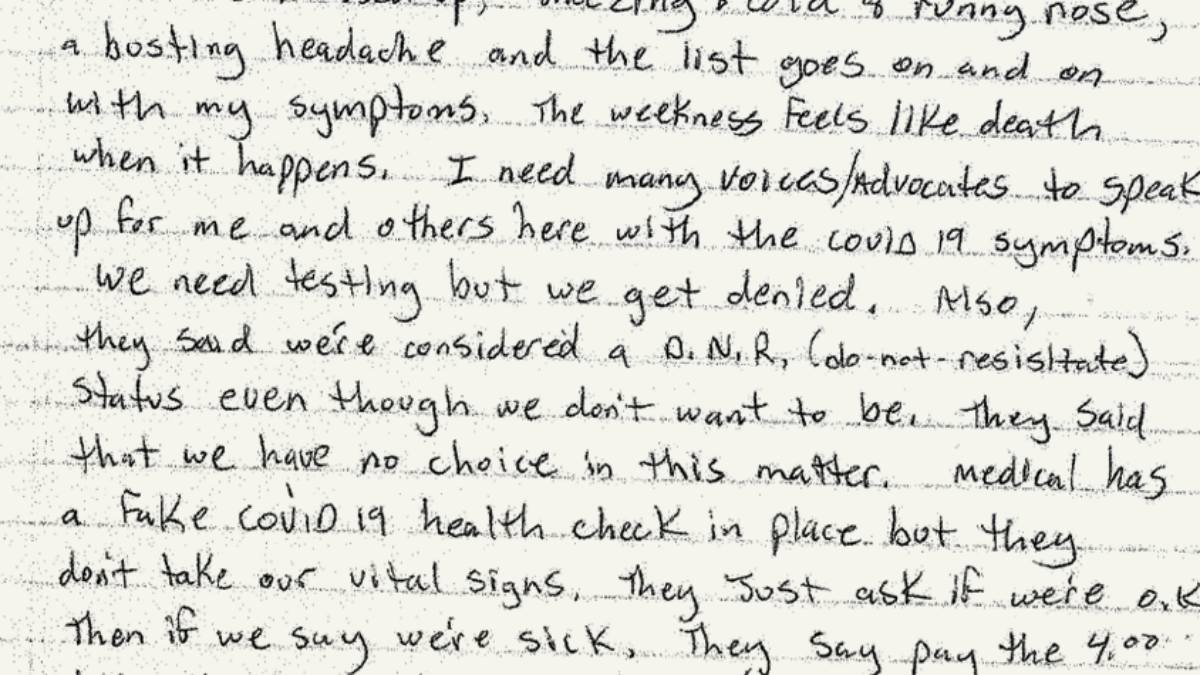 up, sneezing, cold & runny nose,
a bosting headache and the list goes on and on
with my symptoms. The weekness feels like death
when it happens. I need many voices/Advocates to speak
up for me and others here with the covid 19 symptoms.
We need testing but we get denied. Also,
they said we're considered a D.N.R. (do-not-resisitate)
status even though we don't want to be. They said
that we have no choice in this matter. Medical has
a fake covid 19 health check in place but they
don't take our vital signs. They Just ask if we're o.k
Then if we say we're sick. They say pay the 4.00